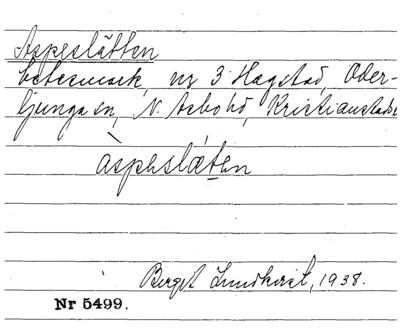 Aspeslätten
betesmark, nr 3 Hagstad, Oder-
ljunga sn, N. Åsbo hd, Kristianstads l
àspeslǽten
Birgit Lundkvist, 1938.
Nr 5499.